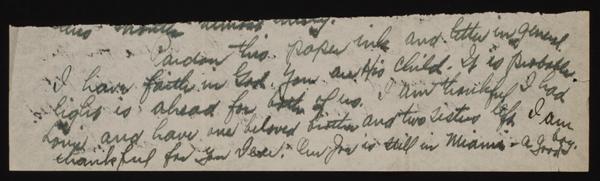 this month almost
Pardon this paper ink and letter in general.
I have faith in God. You are His child. It is probable
light is ahead for both of us. I am thankful I had
and have one beloved sister and two sisters left I am
thankful for you Dear. Our Joe is still in Miami - a good boy.